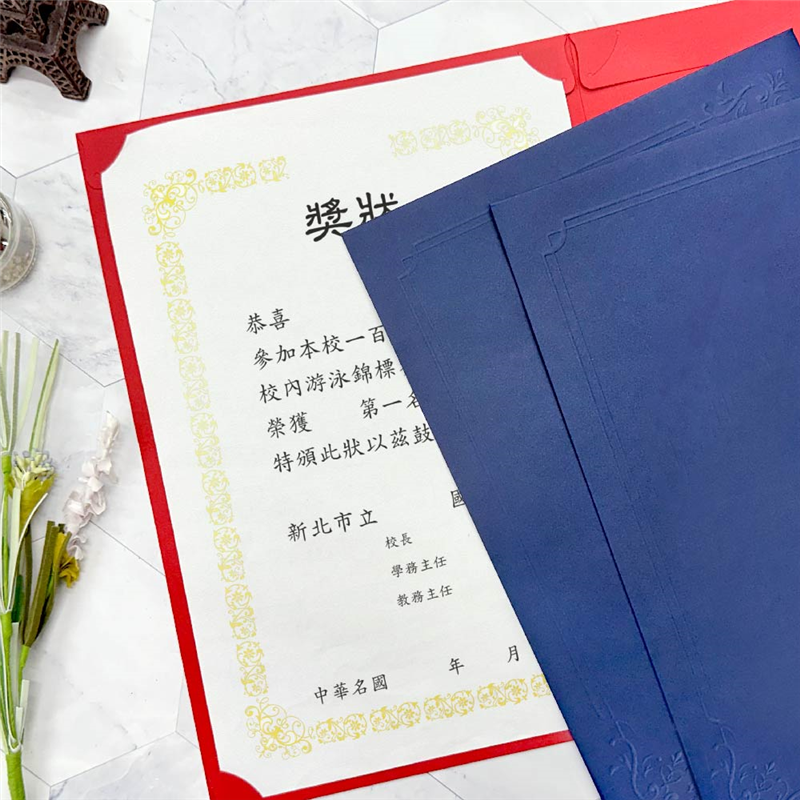 獎狀
恭喜
參加本校一百
校內游泳錦標
榮獲 第一名
特頒此狀以茲鼓
新北市立 國
校長
學務主任
教務主任
中華名國 年 月